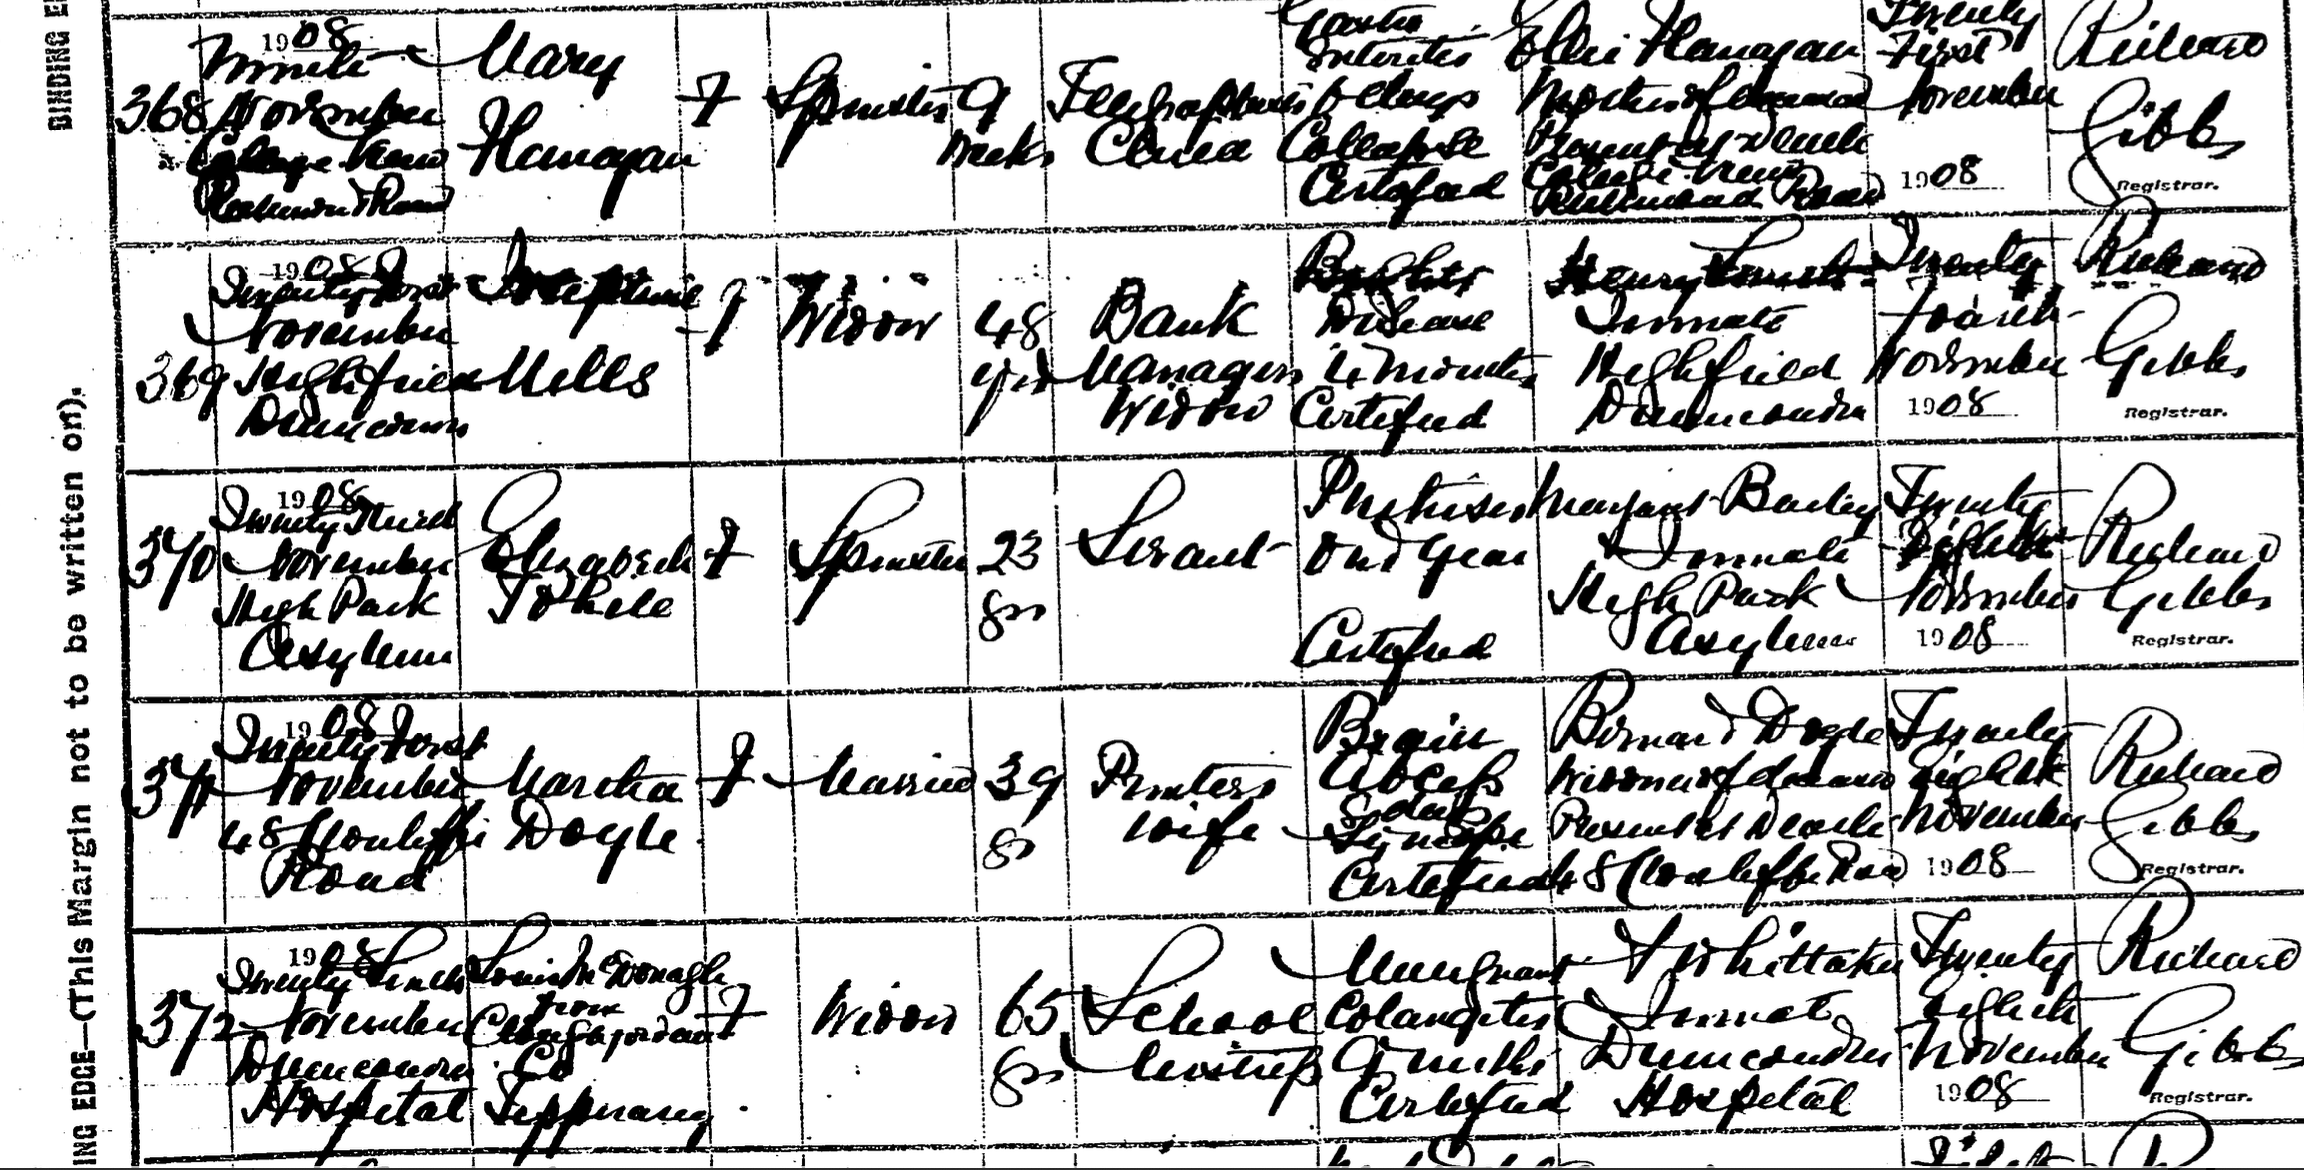 BINDING EDGE—(This Margin not to be written on).
368
1908
November
College View
Richmond Road
Mary
Flanagan
F
Spinster
9
weeks
Telegraphists
Child
Gastro
Enteritis
6 days
Collapse
Certified
Ellen Flanagan
Mother of deceased
Present at Death
College View
Richmond Road
Twenty
First
November
1908
Richard
Gibbs
Registrar.
369
1908
Twenty First
November
Highfield
Drumcondra
Josephine
Mills
F
Widow
48
yrs
Bank
Managers
Widow
Brights
Disease
4 months
Certified
Henry
Inmate
Highfield
Drumcondra
Twenty
fourth
November
1908
Richard
Gibbs
Registrar.
370
1908
Twenty Third
November
High Park
Asylum
Elizabeth
F
Spinster
23
yrs
Servant
Phthisis
One Year
Certified
Margaret Bailey
Inmate
High Park
Asylum
Twenty
Eighth
November
1908
Richard
Gibbs
Registrar.
371
1908
Twenty First
November
48 Clonliffe
Road
Martha
Doyle
F
Married
39
yrs
Printers
Wife
Brain
Abcess
Syncope
Certified
Bernard Doyle
Widower of deceased
Present at Death
48 Clonliffe Road
Twenty
Eighth
November
1908
Richard
Gibbs
Registrar.
372
1908
Twenty
November
Drumcondra
Hospital
Louisa McDonagh
from
Cloughjordan
Co
Tipperary
F
Widow
65
yrs
School
Mistress
Malignant
Certified
Whittaker
Inmate
Drumcondra
Hospital
Twenty
Eighth
November
1908
Richard
Gibbs
Registrar.